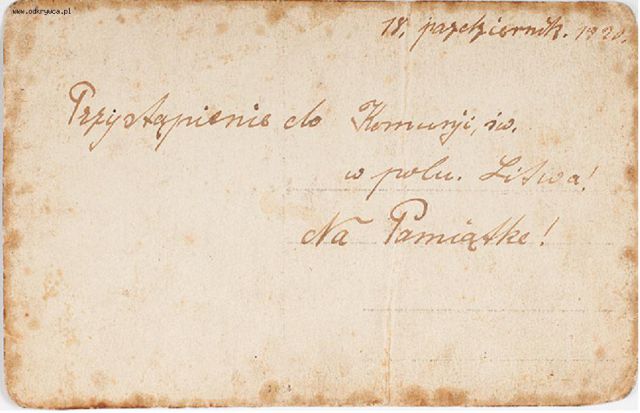 www.odkrywca.pl
18. październik. 1920.
Przystąpienie do Komunji, św.
w polu. Litwa!
Na Pamiątkę!